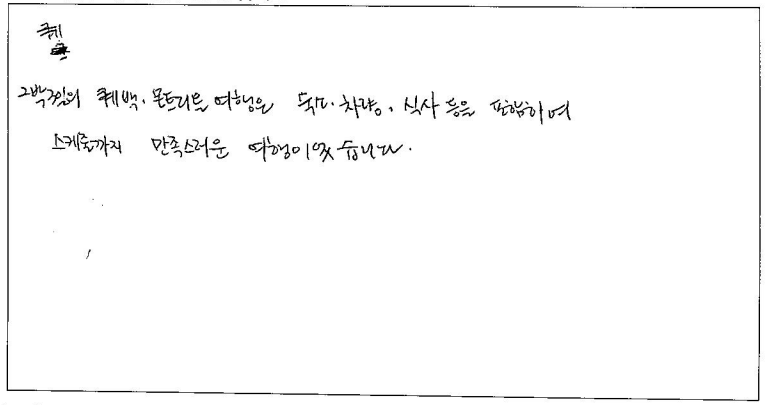 퀘
2박3일의 퀘백.몬트리올 여행은 숙소.차량, 식사 등을 포함하여
스케줄까지 만족스러운 여행이었습니다.